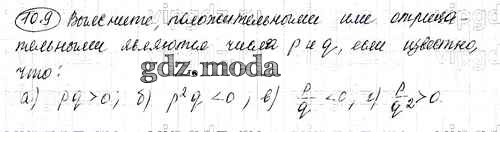 10.9 Выясните, положительными или отрица-
тельными являются числа p и q, если известно,
что:
gdz.moda
а) pq>0; б) p²q<0; в) p/q<0; г) p/q²>0.